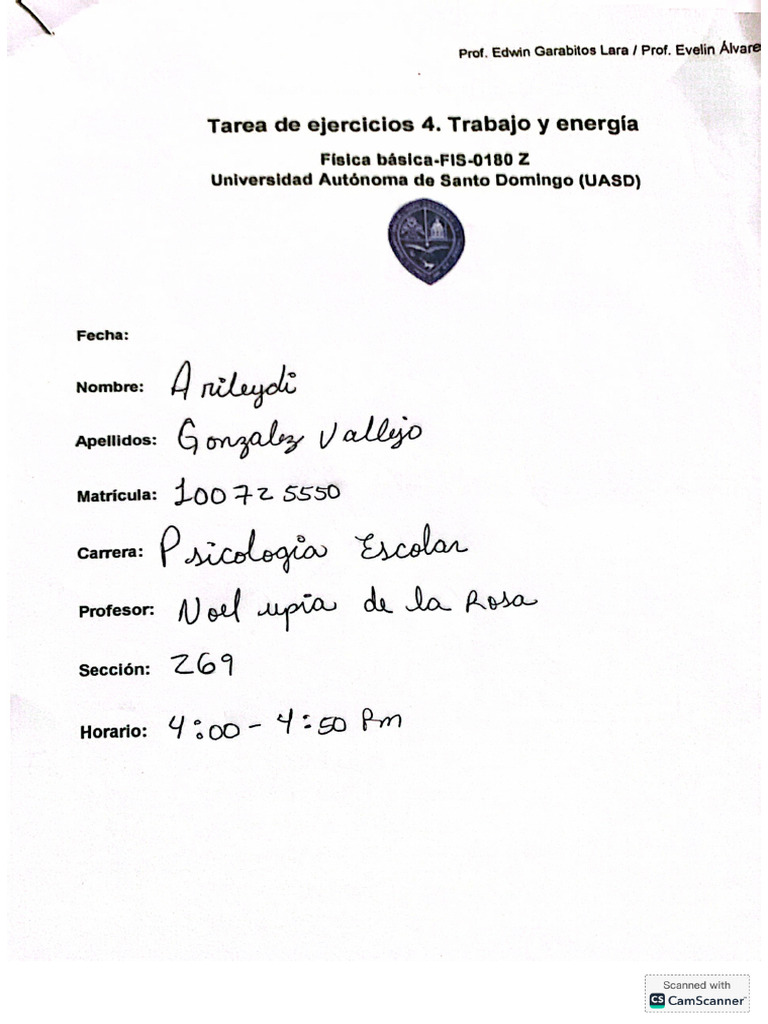 Prof. Edwin Garabitos Lara / Prof. Evelin Álvare
Tarea de ejercicios 4. Trabajo y energía
Física básica-FIS-0180 Z
Universidad Autónoma de Santo Domingo (UASD)
Fecha:
Nombre: Arileydi
Apellidos: Gonzalez Vallejo
Matrícula: 100725550
Carrera: Psicologia Escolar
Profesor: Noel upia de la Rosa
Sección: Z69
Horario: 4:00 - 4:50 Pm
Scanned with
CS CamScanner